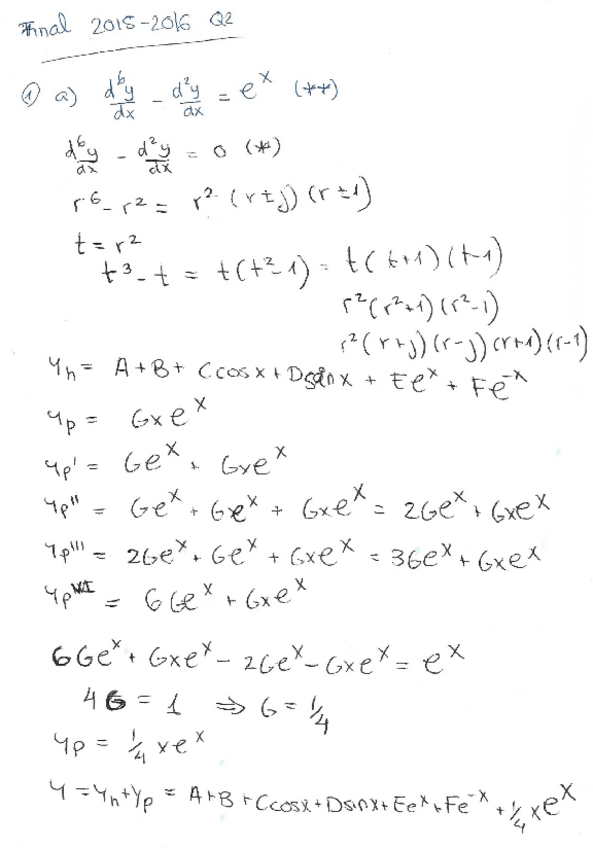 Final 2015-2016 Q2
① a) d⁶y/dx - d²y/dx = eˣ (**)
d⁶y/dx - d²y/dx = 0 (*)
r⁶ - r² = r² (r±j) (r±1)
t = r²
t³ - t = t(t²-1) = t(t+1)(t-1)
r²(r²+1)(r²-1)
r²(r+j)(r-j)(r+1)(r-1)
yₕ = A + B + Ccosx + Dsinx + Eeˣ + Fe⁻ˣ
yp = Gxeˣ
yp' = Geˣ + Gxeˣ
yp'' = Geˣ + Geˣ + Gxeˣ = 2Geˣ + Gxeˣ
yp''' = 2Geˣ + Geˣ + Gxeˣ = 3Geˣ + Gxeˣ
yp^VI = 6Geˣ + Gxeˣ
6Geˣ + Gxeˣ - 2Geˣ - Gxeˣ = eˣ
4G = 1 ⇒ G = 1/4
yp = 1/4 xeˣ
y = yₕ + yp = A + B + Ccosx + Dsinx + Eeˣ + Fe⁻ˣ + 1/4 xeˣ